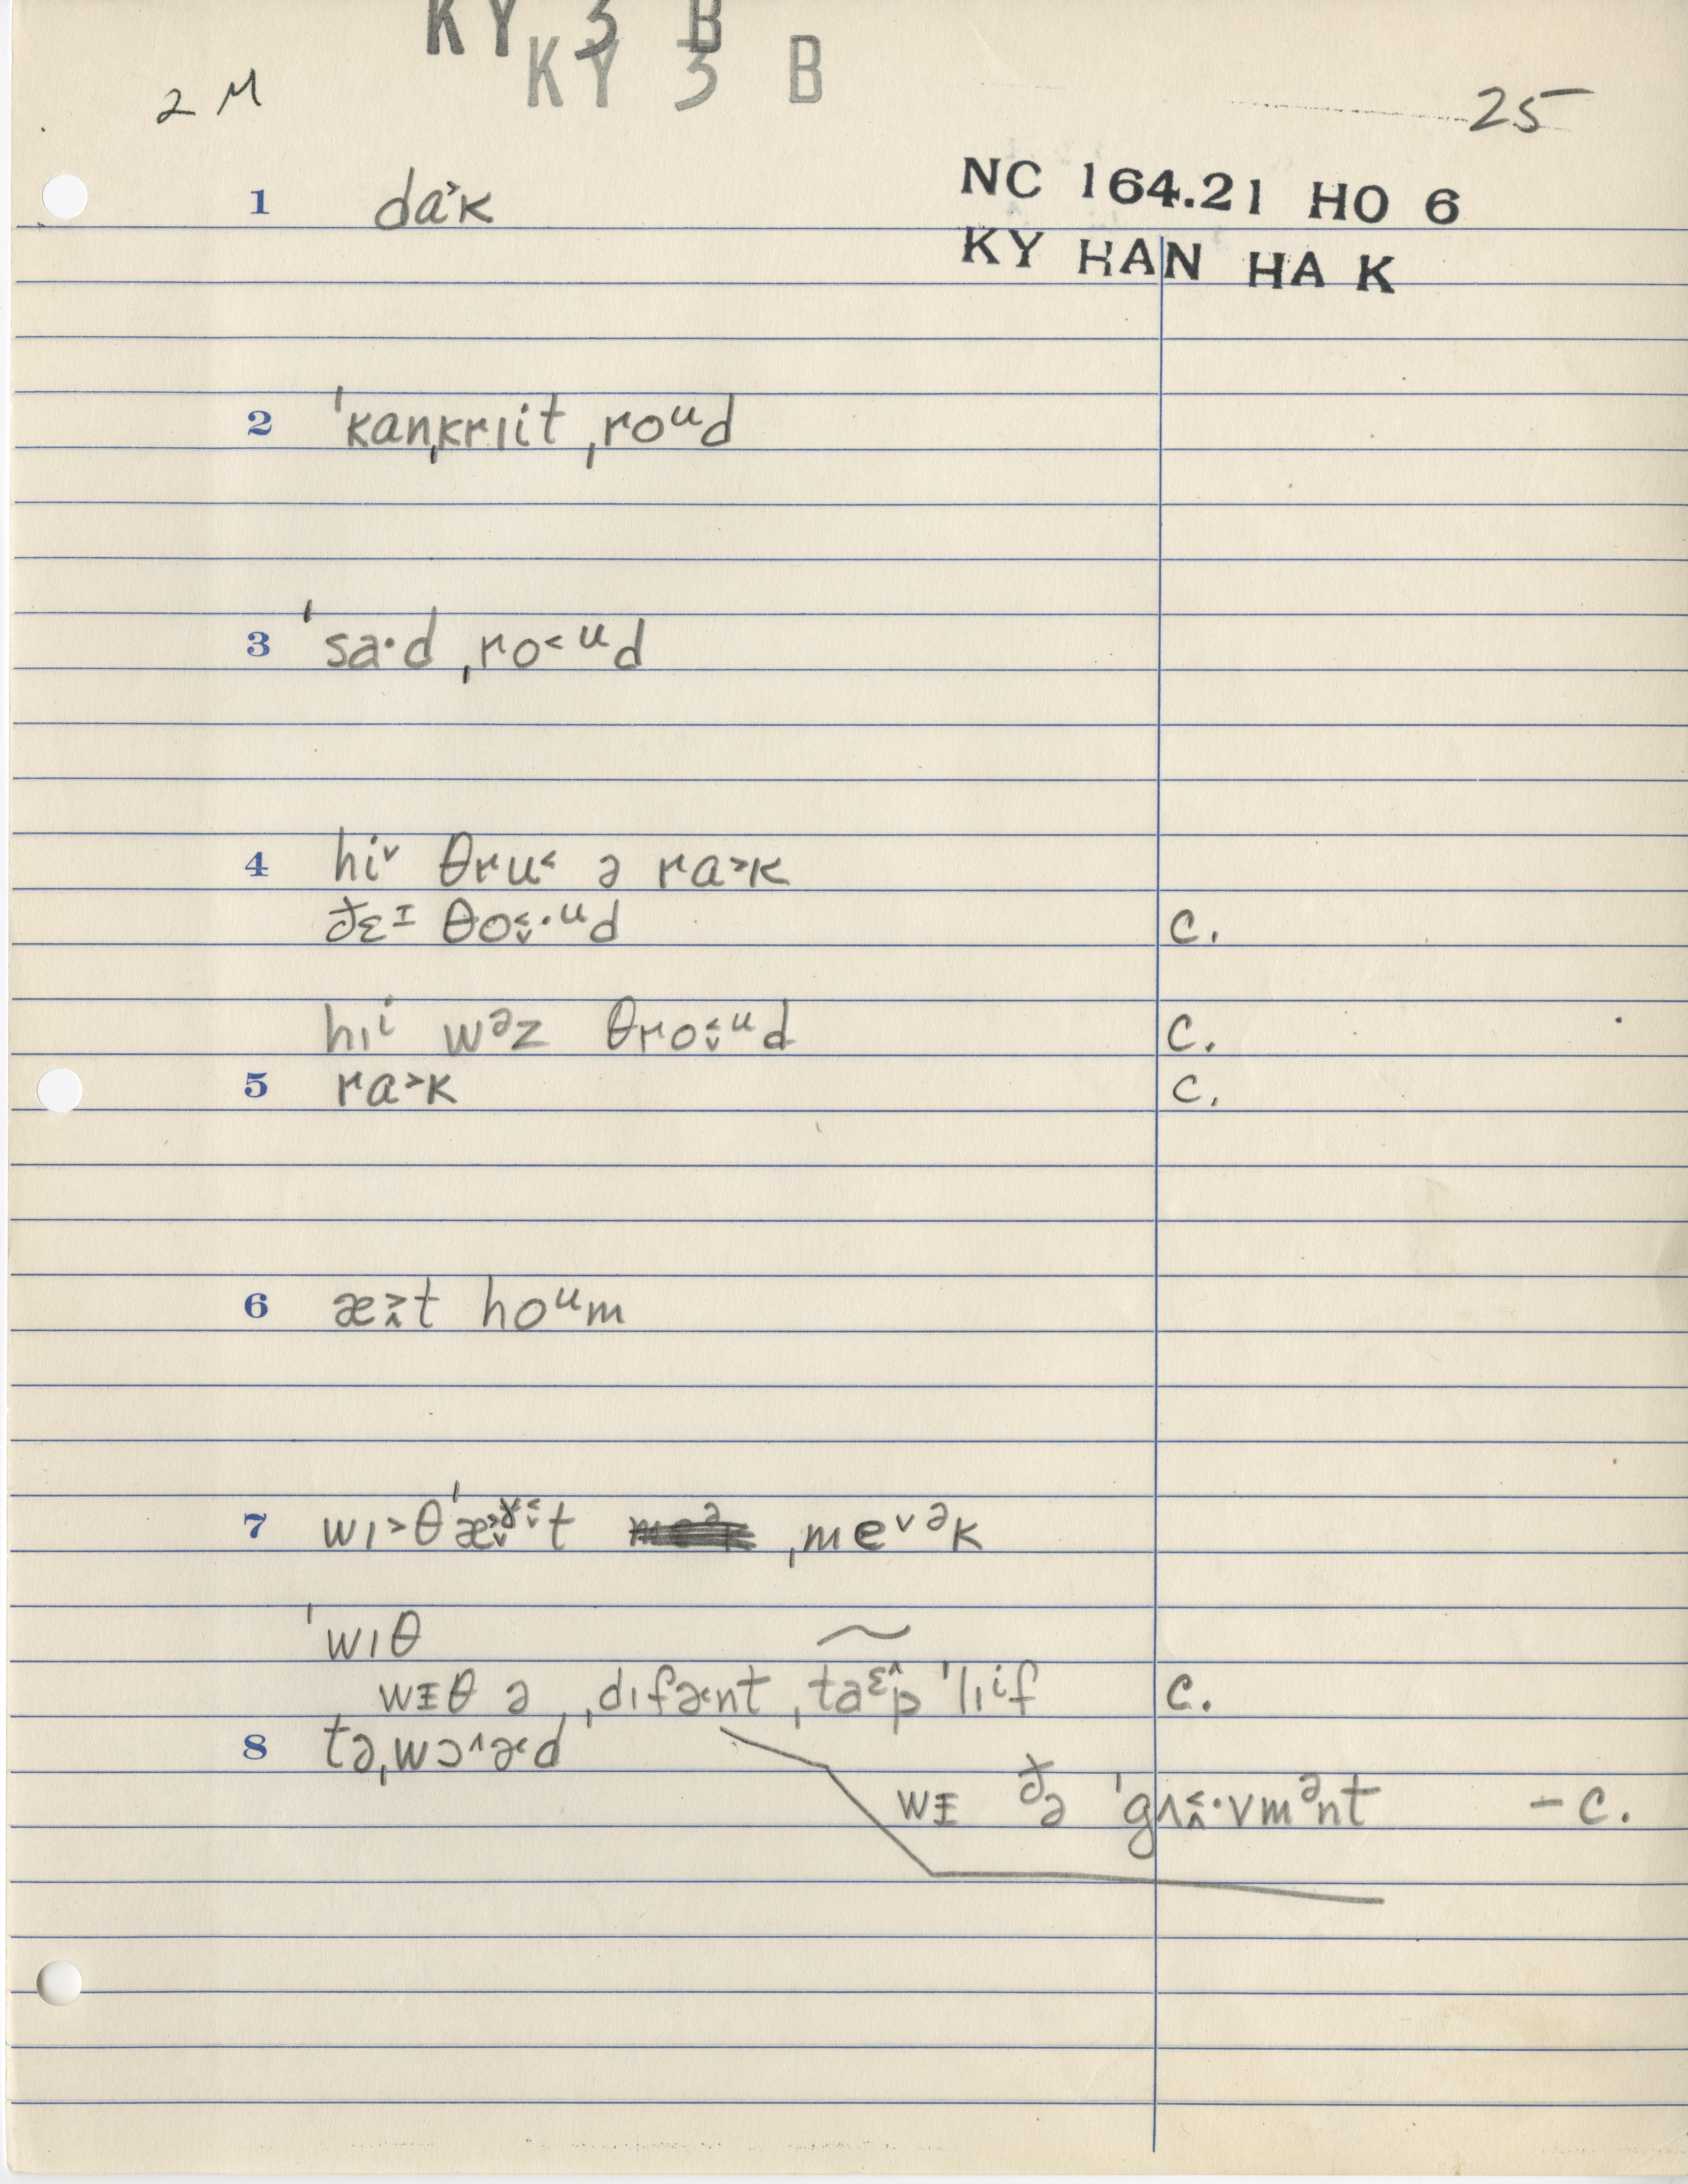 KY 3 B
KY 3 B
2 M
25
NC 164.21 HO 6
KY HAN HA K
1 da˃k
2 ˈkanˌkrɪit ˌroᵘd
3 ˈsa·d ˌro˂ᵘd
4 hi˅ θru˂ ə ra˃k
ðɛᴵ θo˂˅·ᵘd C.
hɪⁱ wᵊz θro˂˅ᵘd C.
5 ra˃k C.
6 æ˃˄t hoᵘm
7 ˌme˅ᵊk
ˈwɪθ
wᵻθ ə ˌdɪfɚnt ˌtaᵋ˄p ˈlɪⁱf C.
8 təˌwɔ˄ɚd
wᵻ ðə ˈgʌ˂˄·vmᵊnt – C.